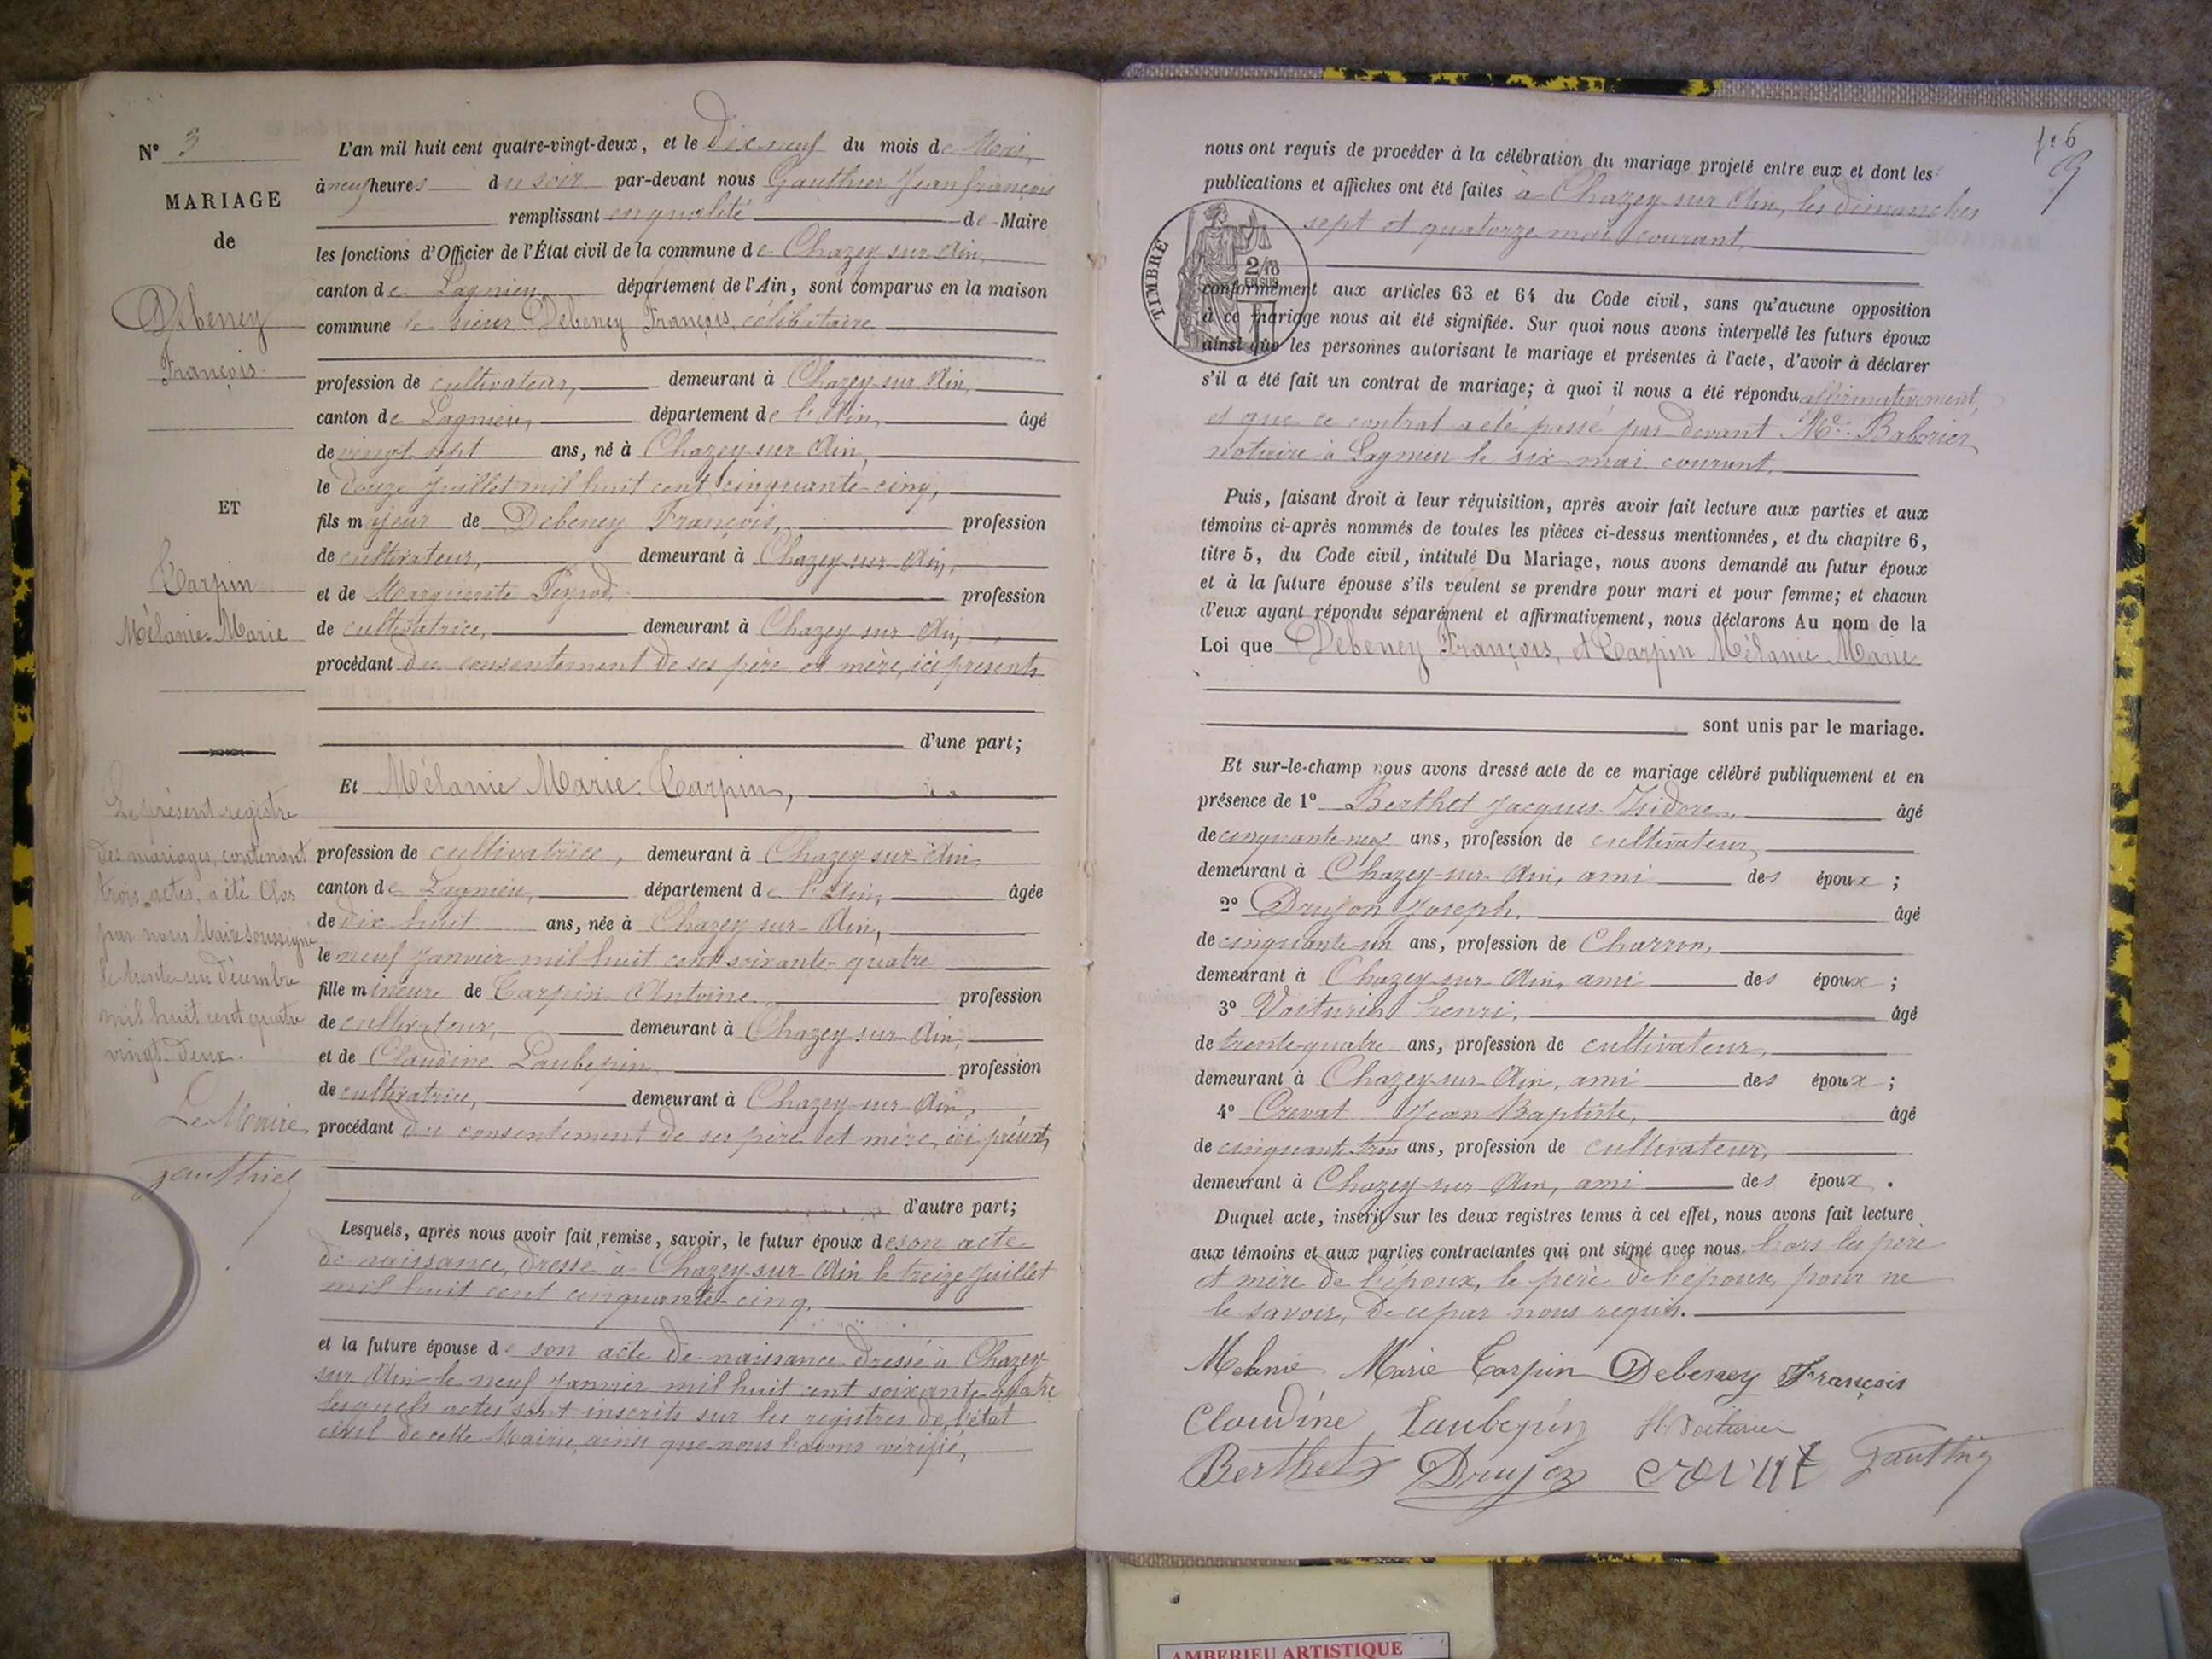 N° 3
MARIAGE
de
Debeney
François
ET
Carpin
Mélanie Marie
Le présent registre
des mariages, contenant
trois actes, a été Clos
par nous Maire soussigné
le trente-un décembre
mil huit cent quatre
vingt-deux.
Le Maire
Gauthier
L'an mil huit cent quatre-vingt-deux, et le dix neuf du mois de Mai,
à neuf heures du soir par-devant nous Gauthier Jean françois
remplissant en qualité de Maire
les fonctions d'Officier de l'État civil de la commune de Chazey sur Ain,
canton de Lagnieu, département de l'Ain, sont comparus en la maison
commune le sieur Debeney François, célibataire
profession de cultivateur, demeurant à Chazey sur Ain,
canton de Lagnieu, département de l'Ain, âgé
de vingt sept ans, né à Chazey sur Ain,
le douze Juillet mil huit cent cinquante-cinq,
fils majeur de Debeney François, profession
de cultivateur, demeurant à Chazey-sur-Ain,
et de Marguerite Peysod, profession
de cultivatrice, demeurant à Chazey sur Ain,
procédant du consentement de ses père et mère, ici présents
d'une part;
Et Mélanie Marie Carpin,
profession de cultivatrice, demeurant à Chazey-sur Ain,
canton de Lagnieu, département de l'Ain, âgée
de dix huit ans, née à Chazey sur Ain,
le neuf Janvier mil huit cent soixante-quatre
fille mineure de Carpin Antoine profession
de cultivateur, demeurant à Chazey-sur Ain,
et de Claudine Laubepin profession
de cultivatrice, demeurant à Chazey-sur-Ain,
procédant du consentement de ses père et mère, ici présent,
d'autre part;
Lesquels, après nous avoir fait remise, savoir, le futur époux de son acte
de naissance, dressé à Chazey-sur Ain le treize Juillet
mil huit cent cinquante-cinq,
et la future épouse de son acte de naissance dressé à Chazey
sur Ain le neuf Janvier mil huit cent soixante-quatre
lesquels actes sont inscrits sur les registres de l'état
civil de cette Mairie ainsi que nous l'avons vérifié,
9
nous ont requis de procéder à la célébration du mariage projeté entre eux et dont les
publications et affiches ont été faites à Chazey sur Ain, les dimanches
sept et quatorze mai courant,
TIMBRE
EN SUS
conformément aux articles 63 et 64 du Code civil, sans qu'aucune opposition
à ce mariage nous ait été signifiée. Sur quoi nous avons interpellé les futurs époux
ainsi que les personnes autorisant le mariage et présentes à l'acte, d'avoir à déclarer
s'il a été fait un contrat de mariage; à quoi il nous a été répondu affirmativement,
et que ce contrat a été passé par devant Me Baborier
notaire à Lagnieu le six mai courant,
Puis, faisant droit à leur réquisition, après avoir fait lecture aux parties et aux
témoins ci-après nommés de toutes les pièces ci-dessus mentionnées, et du chapitre 6,
titre 5, du Code civil, intitulé Du Mariage, nous avons demandé au futur époux
et à la future épouse s'ils veulent se prendre pour mari et pour femme; et chacun
d'eux ayant répondu séparément et affirmativement, nous déclarons Au nom de la
Loi que Debeney François, et Carpin Mélanie Marie
sont unis par le mariage.
Et sur-le-champ nous avons dressé acte de ce mariage célébré publiquement et en
présence de 1° Berthet Jacques Isidore, âgé
de cinquante-neuf ans, profession de cultivateur,
demeurant à Chazey-sur-Ain, ami des époux ;
2° Drujon Joseph, âgé
de cinquante-un ans, profession de Charron,
demeurant à Chazey sur Ain, ami des époux ;
3° Voiturin henri, âgé
de trente-quatre ans, profession de cultivateur,
demeurant à Chazey-sur-Ain, ami des époux ;
4° Crevat Jean Baptiste, âgé
de cinquante trois ans, profession de cultivateur,
demeurant à Chazey-sur-Ain, ami des époux .
Duquel acte, inscrit sur les deux registres tenus à cet effet, nous avons fait lecture
aux témoins et aux parties contractantes qui ont signé avec nous, hors les père
et mère de l'époux, le père de l'épouse, pour ne
le savoir, de ce par nous requis.
Melanie Marie Carpin Debeney François
Claudine Laubepin H. Voiturin
Berthet Drujon Crevat Gauthier
AMBERIEU ARTISTIQUE